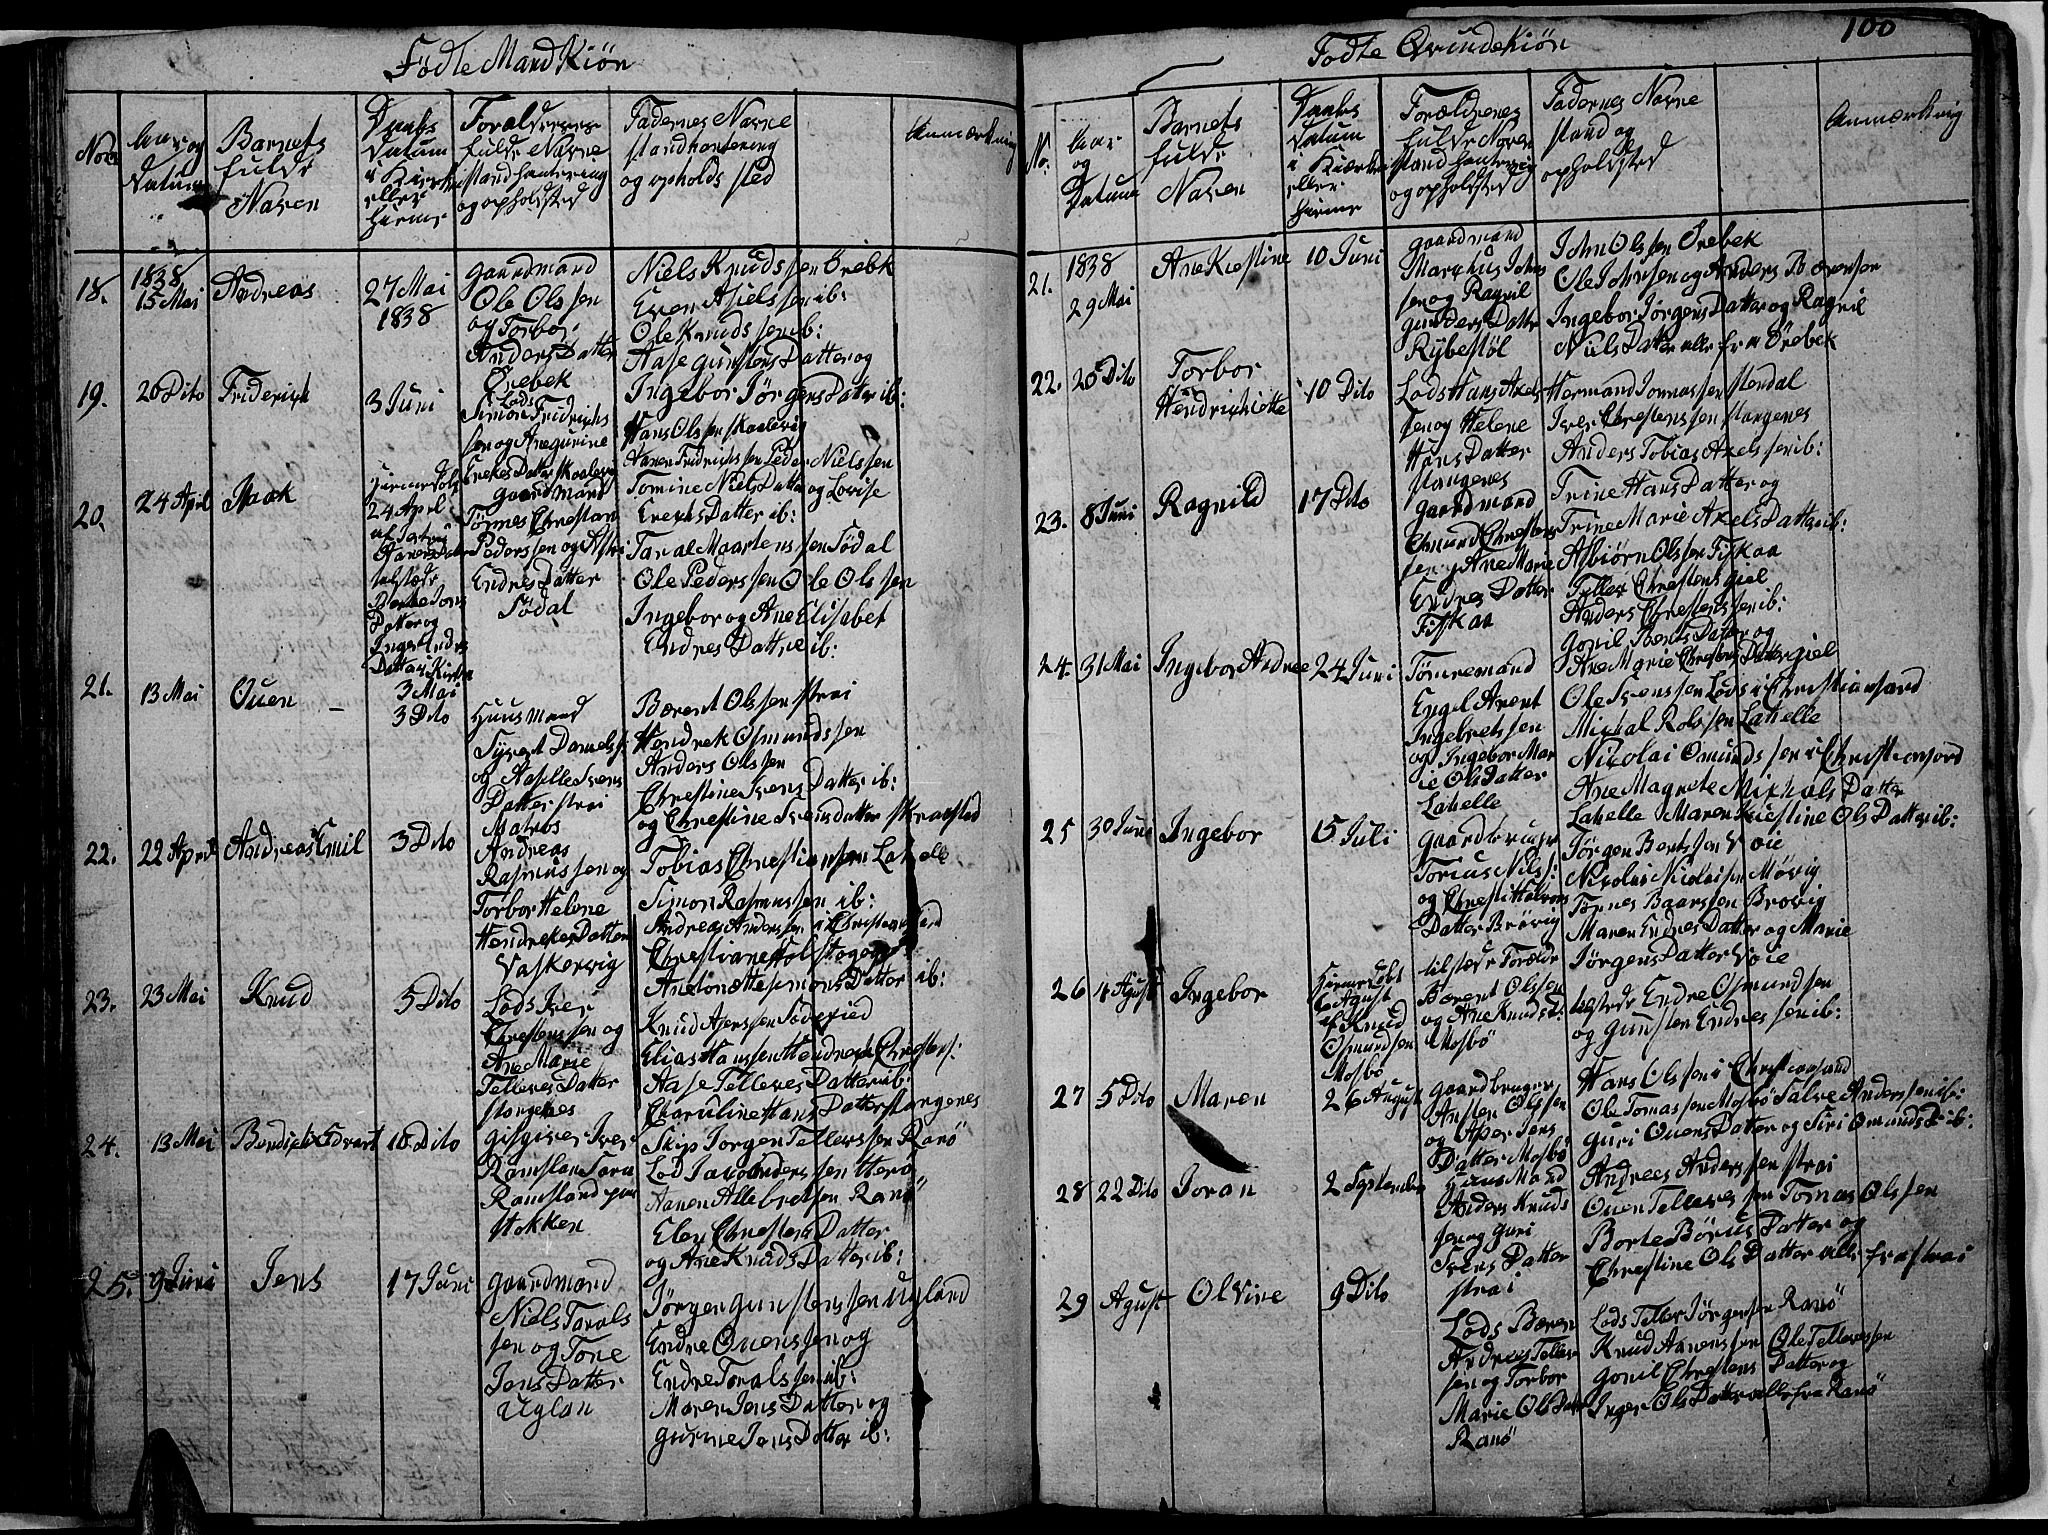 Födte Mand Kiön
No
Aar og
Datum
Barnets
fulde
Naven
Daabs
Datum
i Kierke
eller
hieme
Foraldrenes
fulde Navne
stand hantering
og opholdsted
Fadernes Navne
stand hantering
og opholds sted
Anmærkning
18.
1838
15 Mai
Andreas
27 Mai
1838
gaardmand
Ole Olssen
og Torbor
Anders Datter
Örebek
Niels Knudssen Örebk
Even Asielssen ib:
Ole Knudssen ib:
Aase gunstens Datter og
Ingebor Jörgens Datter ib:
19.
20 Dito
Friderich
3 Juni
Lods
Simon Fridrichs
sen og Anegurine
Erekes Datter Skaalevig
Hans Olssen Skaalevig
Aanen Fridrichssen Peder Nielssen
Tomine Niels Datter og Lovise
Erechs Datter ib:
20.
24 April
Isaak
24 April
af
Datter og
Inger Endres
Datter i Kirken
3 Mai
gaardmand
Tönnes Chrestian
Pederssen og Astri
Endres Datter
Södal
Taral Maartenssen Södal
Ole Pederssen Ole Olssen
Ingebor og Ane Elisabet
Endres Dattre ib:
21.
13 Mai
Ouen
3 Dito
Huusmand
Syvert Danielss
og Aasille Svens
Datter Strai
Bærent Olssen Strai
Hendrek Osmundssen
Anders Olssen
Chrestine Svens Datter ib:
og Chrestine Svensdatter
22.
22 April
Andreas Emil
3 Dito
Matros
Andreas
Rasmussen og
Torbor Helene
Hendrekes Datter
Vaskervig
Tobias Chrestianssen Lahelle
Simon Rasmussen ib:
Andreas Anderssen i Christiansand
Chrestiane
Anetonette Simons Datter ib:
23.
23 Mai
Knud
5 Dito
Lods Iver
Chrestenssen og
Ane Marie
Telleves Datter
Stangenes
Knud Aserssen
Elias Hanssen Hendrech Chrestens:
Aase Telleves Datter ib:
Charuline Hans Datter Stangenes
24.
13 Mai
Bendichte Edvart
10 Dito
gisgiver Iver
Ramslan Sara
Ramsland paa
Stokken
Skip Jörgen Tellefssen Ranö
Lod Jacob Anderssen
Aanen Allebretsen Ranö
Elen Chrestens Datter
og Ane Knuds Datter ib:
25.
9 Juni
Jens
17 Juni
gaardmand
Niels Tarals
sen og Tone
Jens Datter
Uglan
Jörgen gunstenssen Ugland
Endre Ouenssen og
Endre Taralssen ib:
Maren Jens Datter og
gurine Jens Datter ib:
100
Födte QvindeKiön
No.
Aar
og
Datum
Barnets
fulde
Naven
Daabs
Datum
i Kierke
eller
hieme
Forældrenes
fulde Navn
stand hantering
og opholdsted
Fadernes Navne
stand og
opholdsted
Anmærkning
21.
1838
29 Mai
Ane Kiestine
10 Juni
gaardmand
Marchus Johns
sen og Ragnil
gunders Datter
Rybestöl
John Olssen Örebek
Ole Johnsen og Anders Bærensen
Ingebor Jörgens Datter og Ragnil
Niels Datter alle fra Örebek
22.
20 Dito
Torbor
Hendrichiette
10 Dito
Lods Hans Axels
sen og Helene
Hans Datter
Stangenes
Hermand Tonnassen Stendal
Iver Chrestenssen Stangenes
Anders Tobias Axelssen ib:
Trine Hans Datter og
Trine Marie Axels Datter ib:
23.
8 Juni
Ragnild
17 Dito
gaardmand
Omund Chrestens
sen og Ane Marie
Endres Datter
Fiskaa
Asbiörn Olssen Fiskaa
Tellev Chrestens giel
Anders Chrestenssen ib:
Gonil Bents Datter og
Ane Marie Chrestens Datter giel
24.
31 Mai
Ingebor Andree
24 Juni
Tömremand
Engel Arent
Ingebretsen
og Ingebor Mar
ie Ols Datter
Lahelle
Ole Svenssen Lods i Christiansand
Michal Rolvsen Lahelle
Nicolai Omundssen i Christiansand
Ane Magrete Michals Datter
Lahelle Maren Kiestine Ols Datter ib:
25
30 Juni
Ingebor
15 Juli
gaardbruger
Torius Nils:
og Chresti Halvors
Datter Brövig
Jörgen Bentssen Voie
Nicolai Nicolaisen Mövig
Tönnes Baarssen Brövig
Maren Endres Datter og Marie
Jörgens Datter Voie
26
4 Agust
Ingebor
Hiemedöbt
6 Agust
af Knud
Osmundsen
Mosbö
tilstæde Forældr
Bærent Olssen
og Ane Knuds D:
Mosbö
Endre Osmundsen
og gunsten Endressen ib:
27
5 Dito
Maren
26 August
gaardbruger
Ansten Olssen
og Aser Jens
Datter Mosbö
Hans Olssen i Christiansand
Ole Tomassen Mosbö Salve Anderssen ib:
guri Ouens Datter og Siri Omunds D ib:
28
22 Dito
Joran
2 September
Huusmand
Anders Knuds
sen og guri
Svens Datter
Strai
Andreas Anderssen Strai
Ouen Tellevessen Tomas Olssen
Borte Börius Datter og
Chrestine Ols Datter alle fra Strai
29
Agust
Olvine
9 Dito
Lods Bæren
Andreas Telless
sen og Torbor
Marie Ols Datt
Ranö
Lods Tellev Jörgensen Ranö
Knud Aanenssen Ole Tellevessen
Gonil Chrestens Datter og
Inger Ols Datter alle fra Ranö